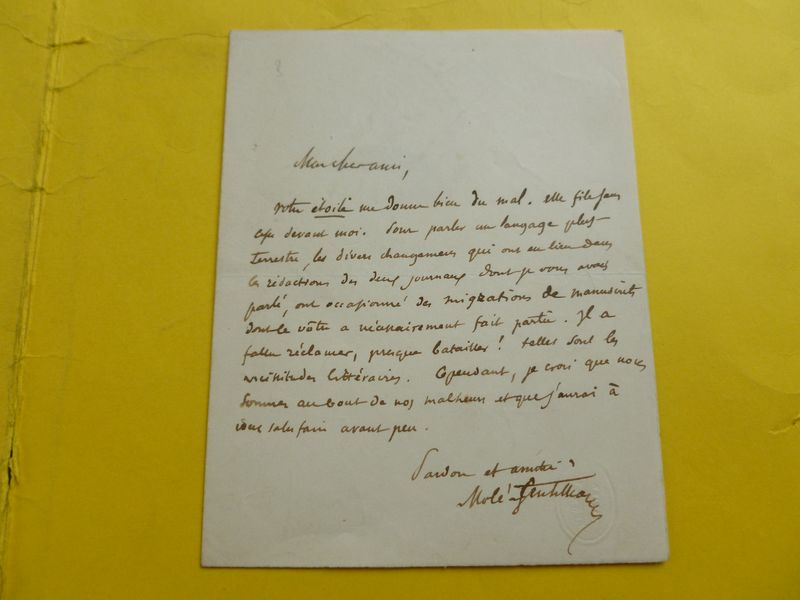 Mon cher ami,
Votre étoile me donne bien du mal. elle file sans
cesse devant moi. Pour parler un langage plus
terrestre, les divers changemens qui ont eu lieu dans
les rédactions des deux journaux dont je vous avais
parlé, ont occasionné des migrations de manuscrits
dont le vôtre a nécessairement fait partie. Il a
fallu réclamer, presque batailler! telles sont les
vicissitudes littéraires. Cependant, je crois que nous
sommes au bout de nos malheurs et que j'aurai à
vous satisfaire avant peu.
Pardon et amitié
Molé-Gentilhomme